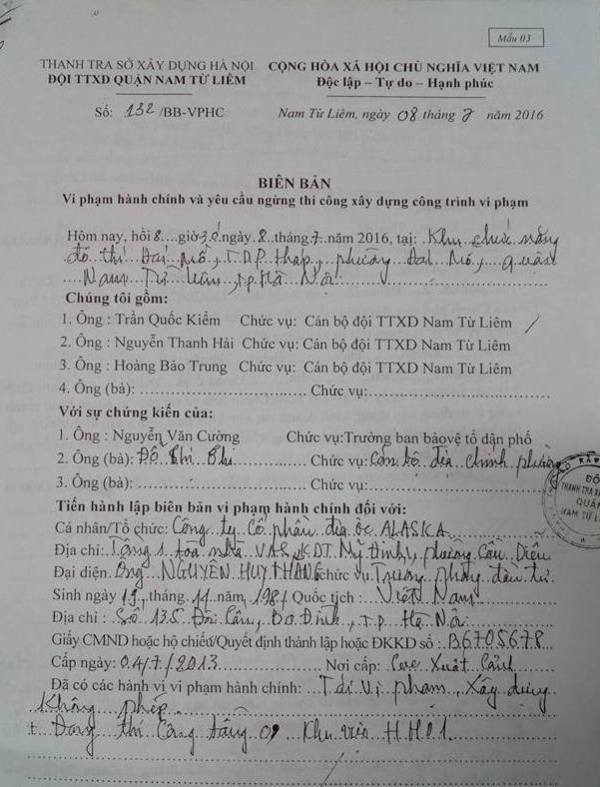 Mẫu 03
THANH TRA SỞ XÂY DỰNG HÀ NỘI
ĐỘI TTXD QUẬN NAM TỪ LIÊM
CỘNG HÒA XÃ HỘI CHỦ NGHĨA VIỆT NAM
Độc lập – Tự do – Hạnh phúc
Số: 132 /BB-VPHC
Nam Từ Liêm, ngày 08 tháng 7 năm 2016
BIÊN BẢN
Vi phạm hành chính và yêu cầu ngừng thi công xây dựng công trình vi phạm
Hôm nay, hồi 8....giờ 30 ngày 8..tháng 7..năm 2016, tại: Khu chức năng
đô thị Đại Mỗ, TDP Tháp, phường Đại Mỗ, quận
Nam Từ Liêm, tp. Hà Nội
Chúng tôi gồm:
1. Ông : Trần Quốc Kiểm Chức vụ: Cán bộ đội TTXD Nam Từ Liêm
2. Ông : Nguyễn Thanh Hải Chức vụ: Cán bộ đội TTXD Nam Từ Liêm
3. Ông : Hoàng Bảo Trung Chức vụ: Cán bộ đội TTXD Nam Từ Liêm
4. Ông (bà): ........................ Chức vụ:........................
Với sự chứng kiến của:
1. Ông : Nguyễn Văn Cường Chức vụ:Trưởng ban bảovệ tổ dân phố
2. Ông (bà): Đỗ Thị Chức vụ: Cán bộ địa chính phường
3. Ông (bà): ........................ Chức vụ:........................
ĐỘI
THANH TRA
QUẬN
NAM TỪ
Tiến hành lập biên bản vi phạm hành chính đối với:
Cá nhân/Tổ chức: Công ty Cổ phần địa ốc ALASKA
Địa chỉ: Tầng 1 tòa nhà KĐT Mỹ Đình, phường Cầu Diễn
Đại diện Ông NGUYỄN HUY THẮNG chức vụ Trưởng phòng đầu tư
Sinh ngày 19..tháng 11..năm 1981 Quốc tịch : Việt Nam
Địa chỉ : Số 135 Đội Cấn, Ba Đình, T.p Hà Nội
Giấy CMND hoặc hộ chiếu/Quyết định thành lập hoặc ĐKKD số : B6705678
Cấp ngày: 04/7/2013 Nơi cấp: Cục Xuất Cảnh
Đã có các hành vi vi phạm hành chính: Tái vi phạm Xây dựng
Không phép
+ Đang thi công tầng 09 Khu HH01